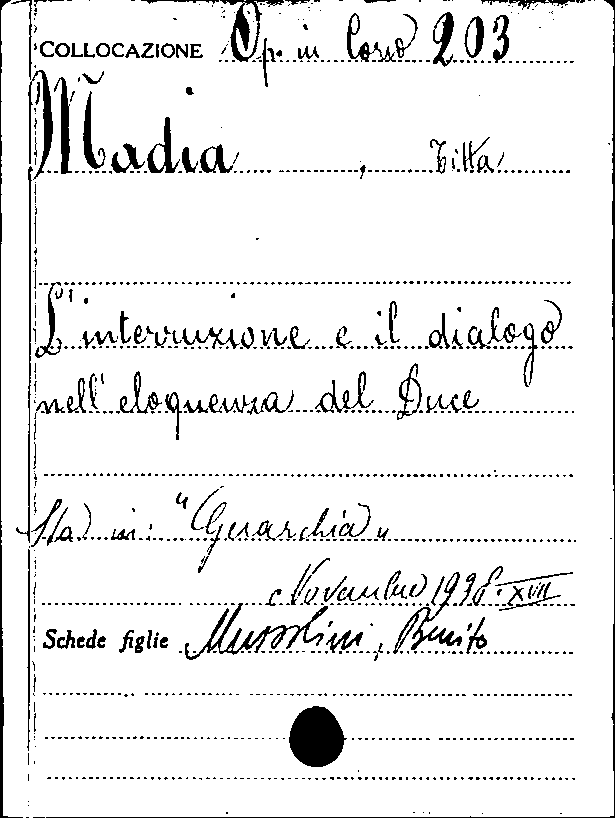 COLLOCAZIONE Op. in Corso 203
Madia , Titta
L'interruzione e il dialogo
nell'eloquenza del Duce
Sta in: "Gerarchia"
Novembre 1938-XVII
Schede figlie Mussolini, Benito